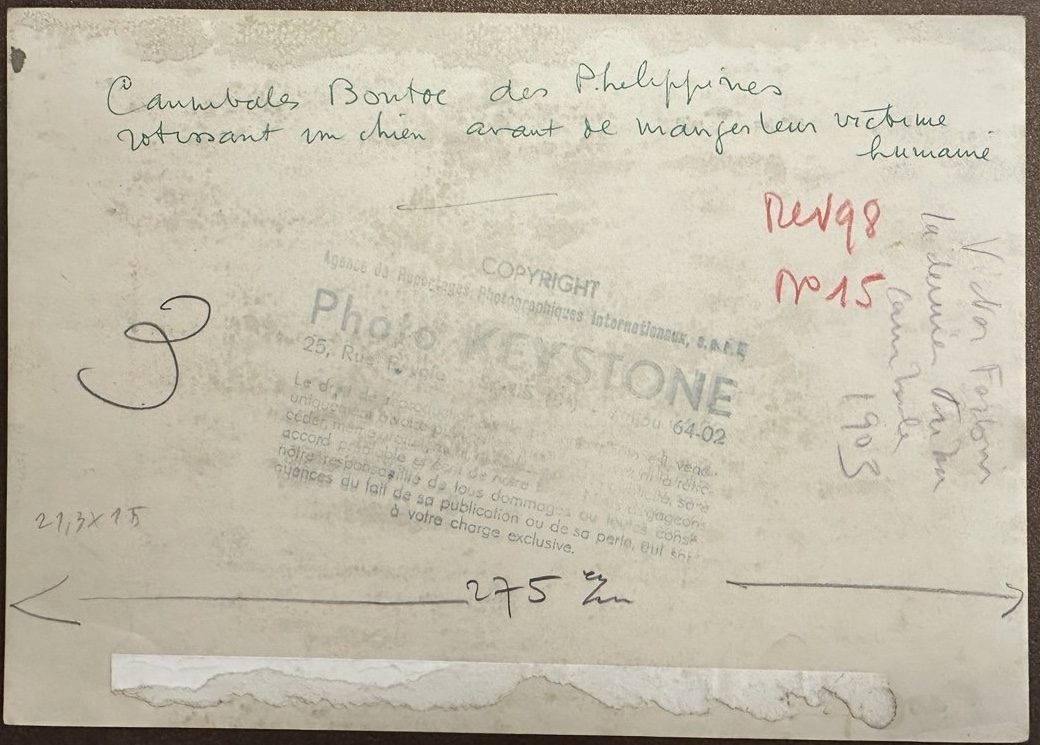 Cannibales Bontoc des Philippines
rotissant un chien avant de manger leur victime
humaine
Rev 98
No 15
COPYRIGHT
Agence de Reportages Photographiques Internationaux, s.a.r.l.
Photo KEYSTONE
25, Rue
64-02
Le droit de reproduction
uniquement à votre
céder, même
accord préalable et écrit de notre
notre responsabilité de tous dommages ou toutes consé-
quences du fait de sa publication ou de sa perte, qui sont
à votre charge exclusive.
Victor Forbin
la dernière
cannibale
1903
21,3 x 15
275 m/m